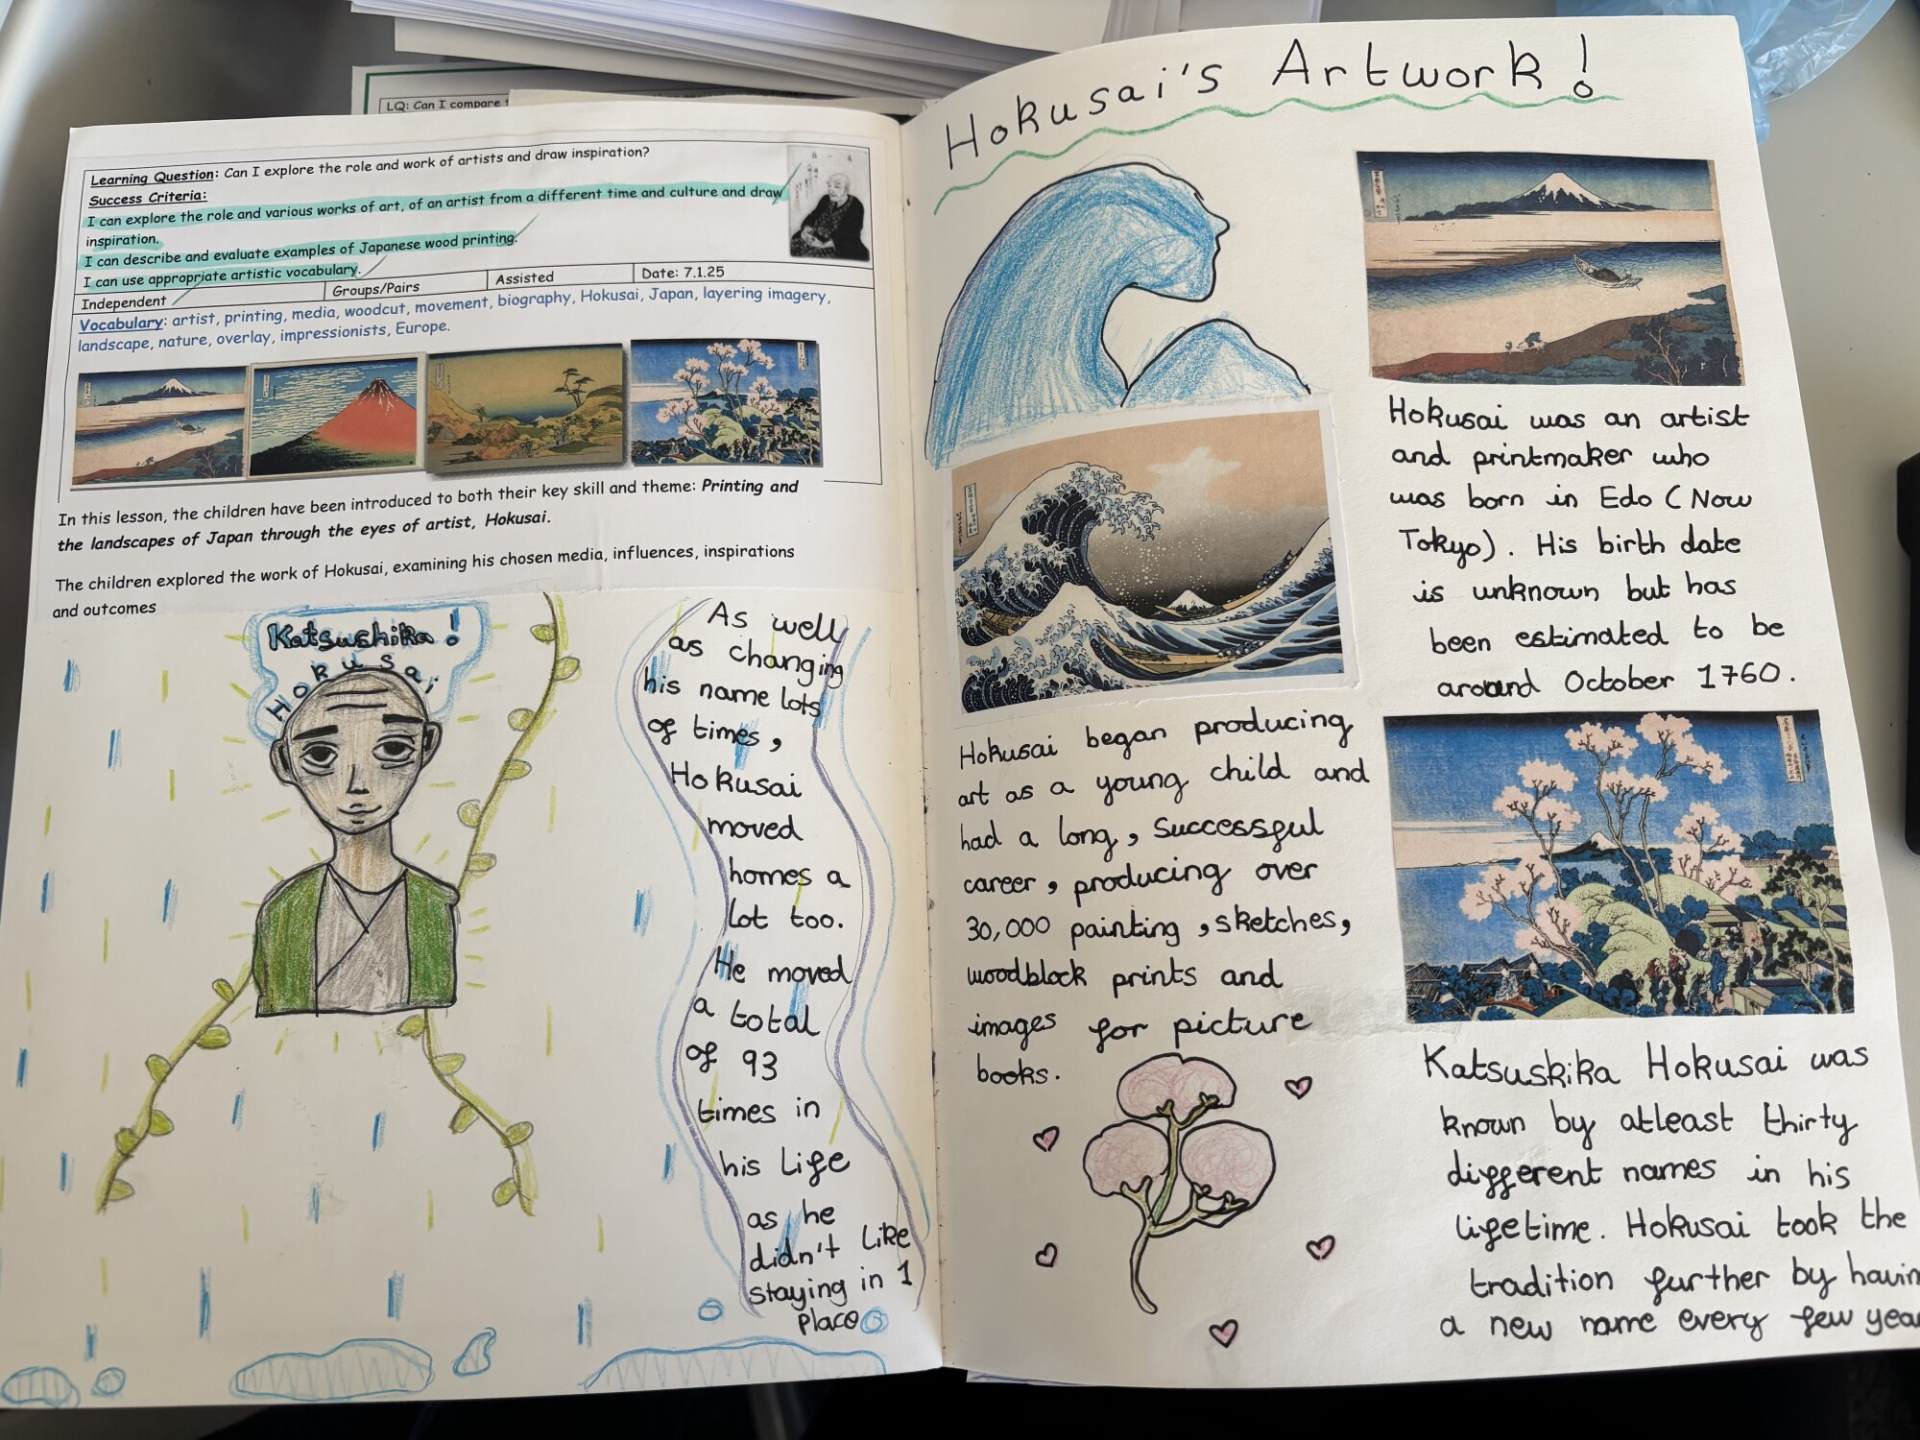 LQ: Can I compare
Learning Question: Can I explore the role and work of artists and draw inspiration?
Success Criteria:
I can explore the role and various works of art, of an artist from a different time and culture and draw
inspiration.
I can describe and evaluate examples of Japanese wood printing.
I can use appropriate artistic vocabulary.
Independent Groups/Pairs Assisted Date: 7.1.25
Vocabulary: artist, printing, media, woodcut, movement, biography, Hokusai, Japan, layering imagery,
landscape, nature, overlay, impressionists, Europe.
In this lesson, the children have been introduced to both their key skill and theme: Printing and
the landscapes of Japan through the eyes of artist, Hokusai.
The children explored the work of Hokusai, examining his chosen media, influences, inspirations
and outcomes
Katsushika!
Hokusai
As well
as changing
his name lots
of times,
Hokusai
moved
homes a
lot too.
He moved
a total
of 93
times in
his life
as he
didn't like
staying in 1
place
Hokusai's Artwork!
Hokusai began producing
art as a young child and
had a long, successful
career, producing over
30,000 painting, sketches,
woodblock prints and
images for picture
books.
Hokusai was an artist
and printmaker who
was born in Edo (Now
Tokyo). His birth date
is unknown but has
been estimated to be
around October 1760.
Katsuskika Hokusai was
known by atleast thirty
different names in his
lifetime. Hokusai took the
tradition further by havin
a new name every few yea